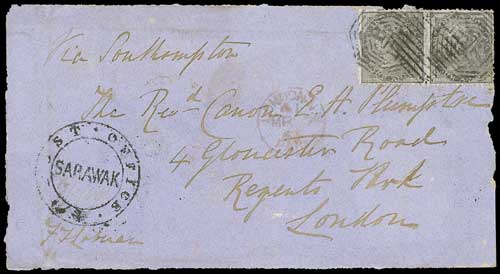 Via Southampton
The Revd Canon E. H. Plumptre
4 Gloucester Road
Regents Park
London
POST OFFICE
SARAWAK